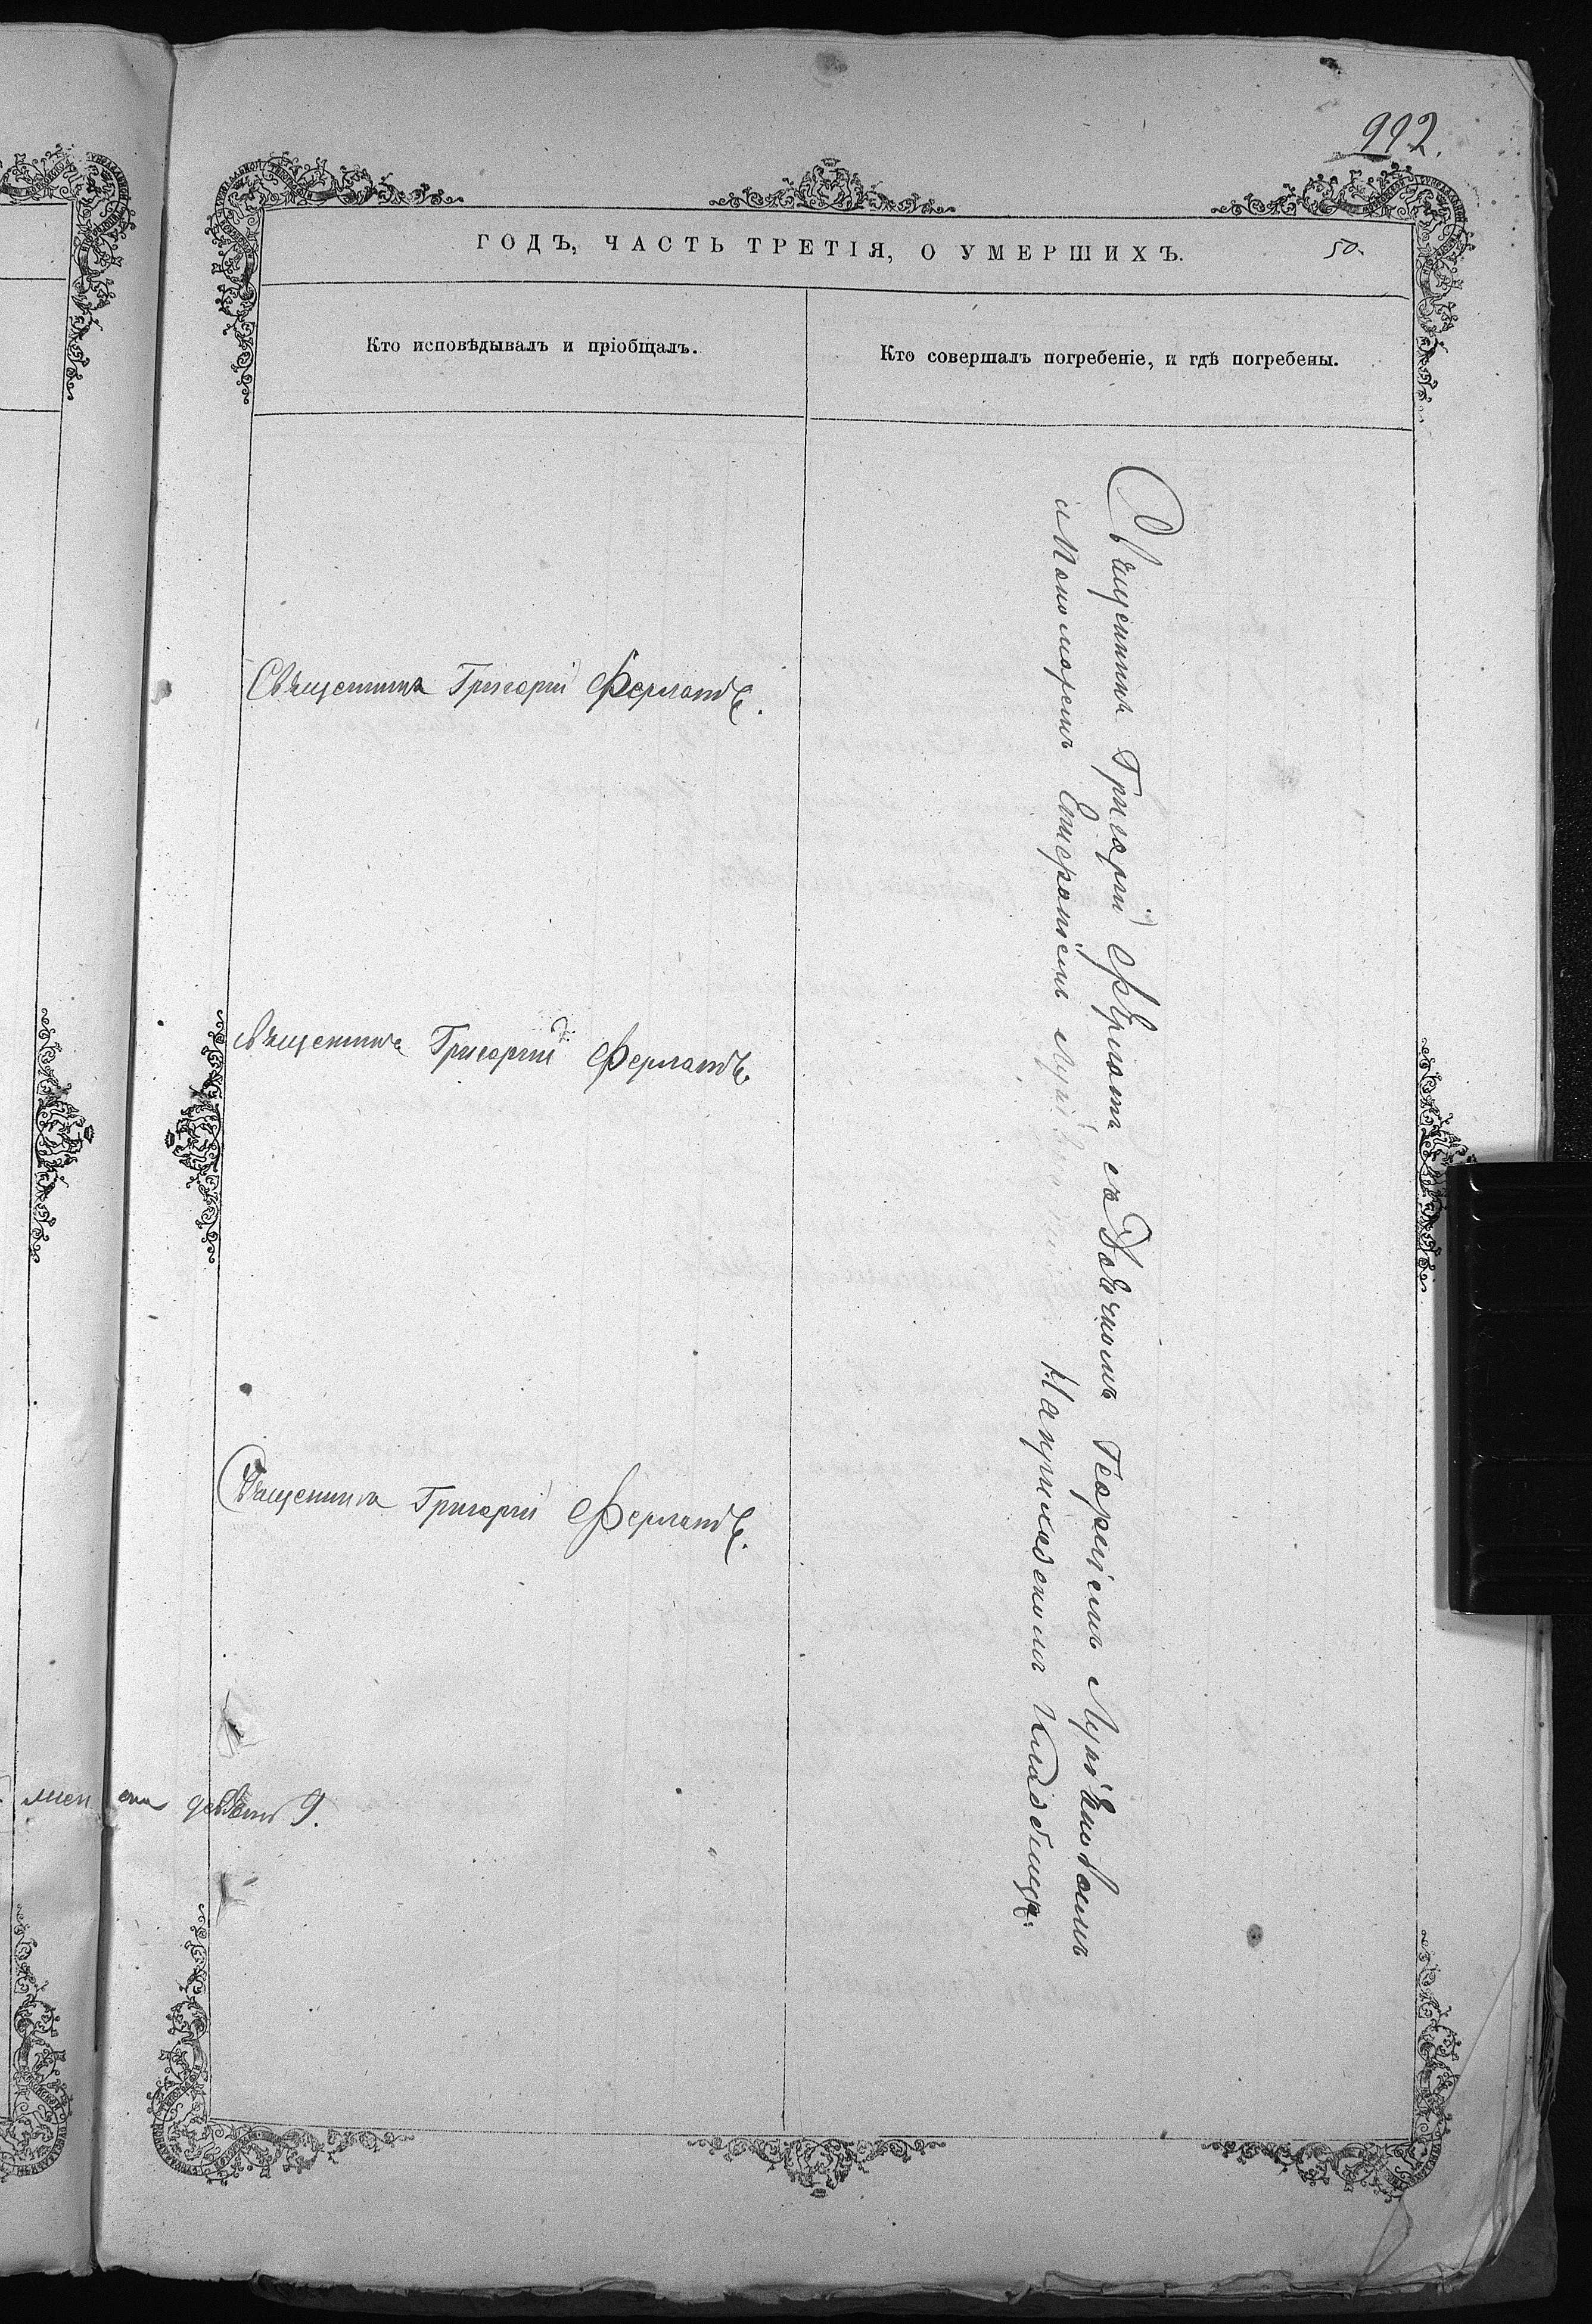 992.
ГОДЪ, ЧАСТЬ ТРЕТІЯ, О УМЕРШИХЪ.
50.
Кто исповѣдывалъ и пріобщалъ.
Кто совершалъ погребеніе, и гдѣ погребены.
Священникъ Григорій Ферлатъ.
священникъ Григорій Ферлатъ.
Священникъ Григорій Ферлатъ.
девять 9.
Священникъ Григорій Ферлатъ съ Дьячкомъ Георгіемъ
и Пономоремъ На приходскомъ Кладбищѣ.